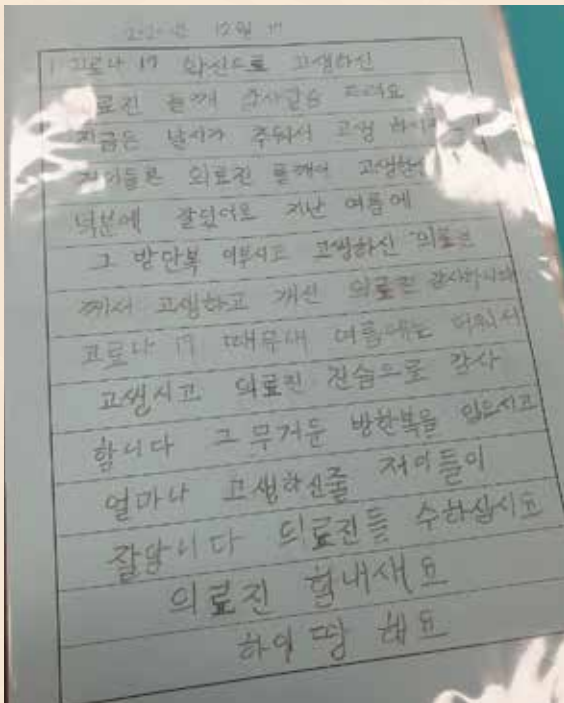 12월 17
코로나 19 확신으로 고생하신
의료진 들께 감사글을 드려요
지금은 날씨가 추워서 고생 하시
저이들은 의료진 들께서 고생한
덕분에 잘있어요 지난 여름에
그 방안복 이부시고 고생하신 의료진
께서 고생하고 개신 의료진 감사하니다
코로나 19 때무내 여름때는 더워서
고생시고 의료진 진슴으로 감사
함니다 그 무거둔 방한복을 입으시고
얼마나 고생하신줄 저이들이
잘암니다 의료진들 수하십시요
의료진 힘내새요
하이띵 해요